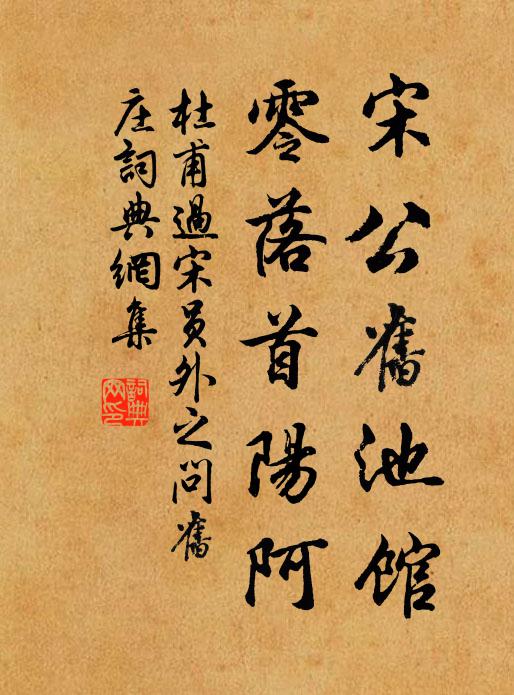 宋公舊池館
零落首陽阿
杜甫過宋員外之問舊
庄詞典網集
詞典網印